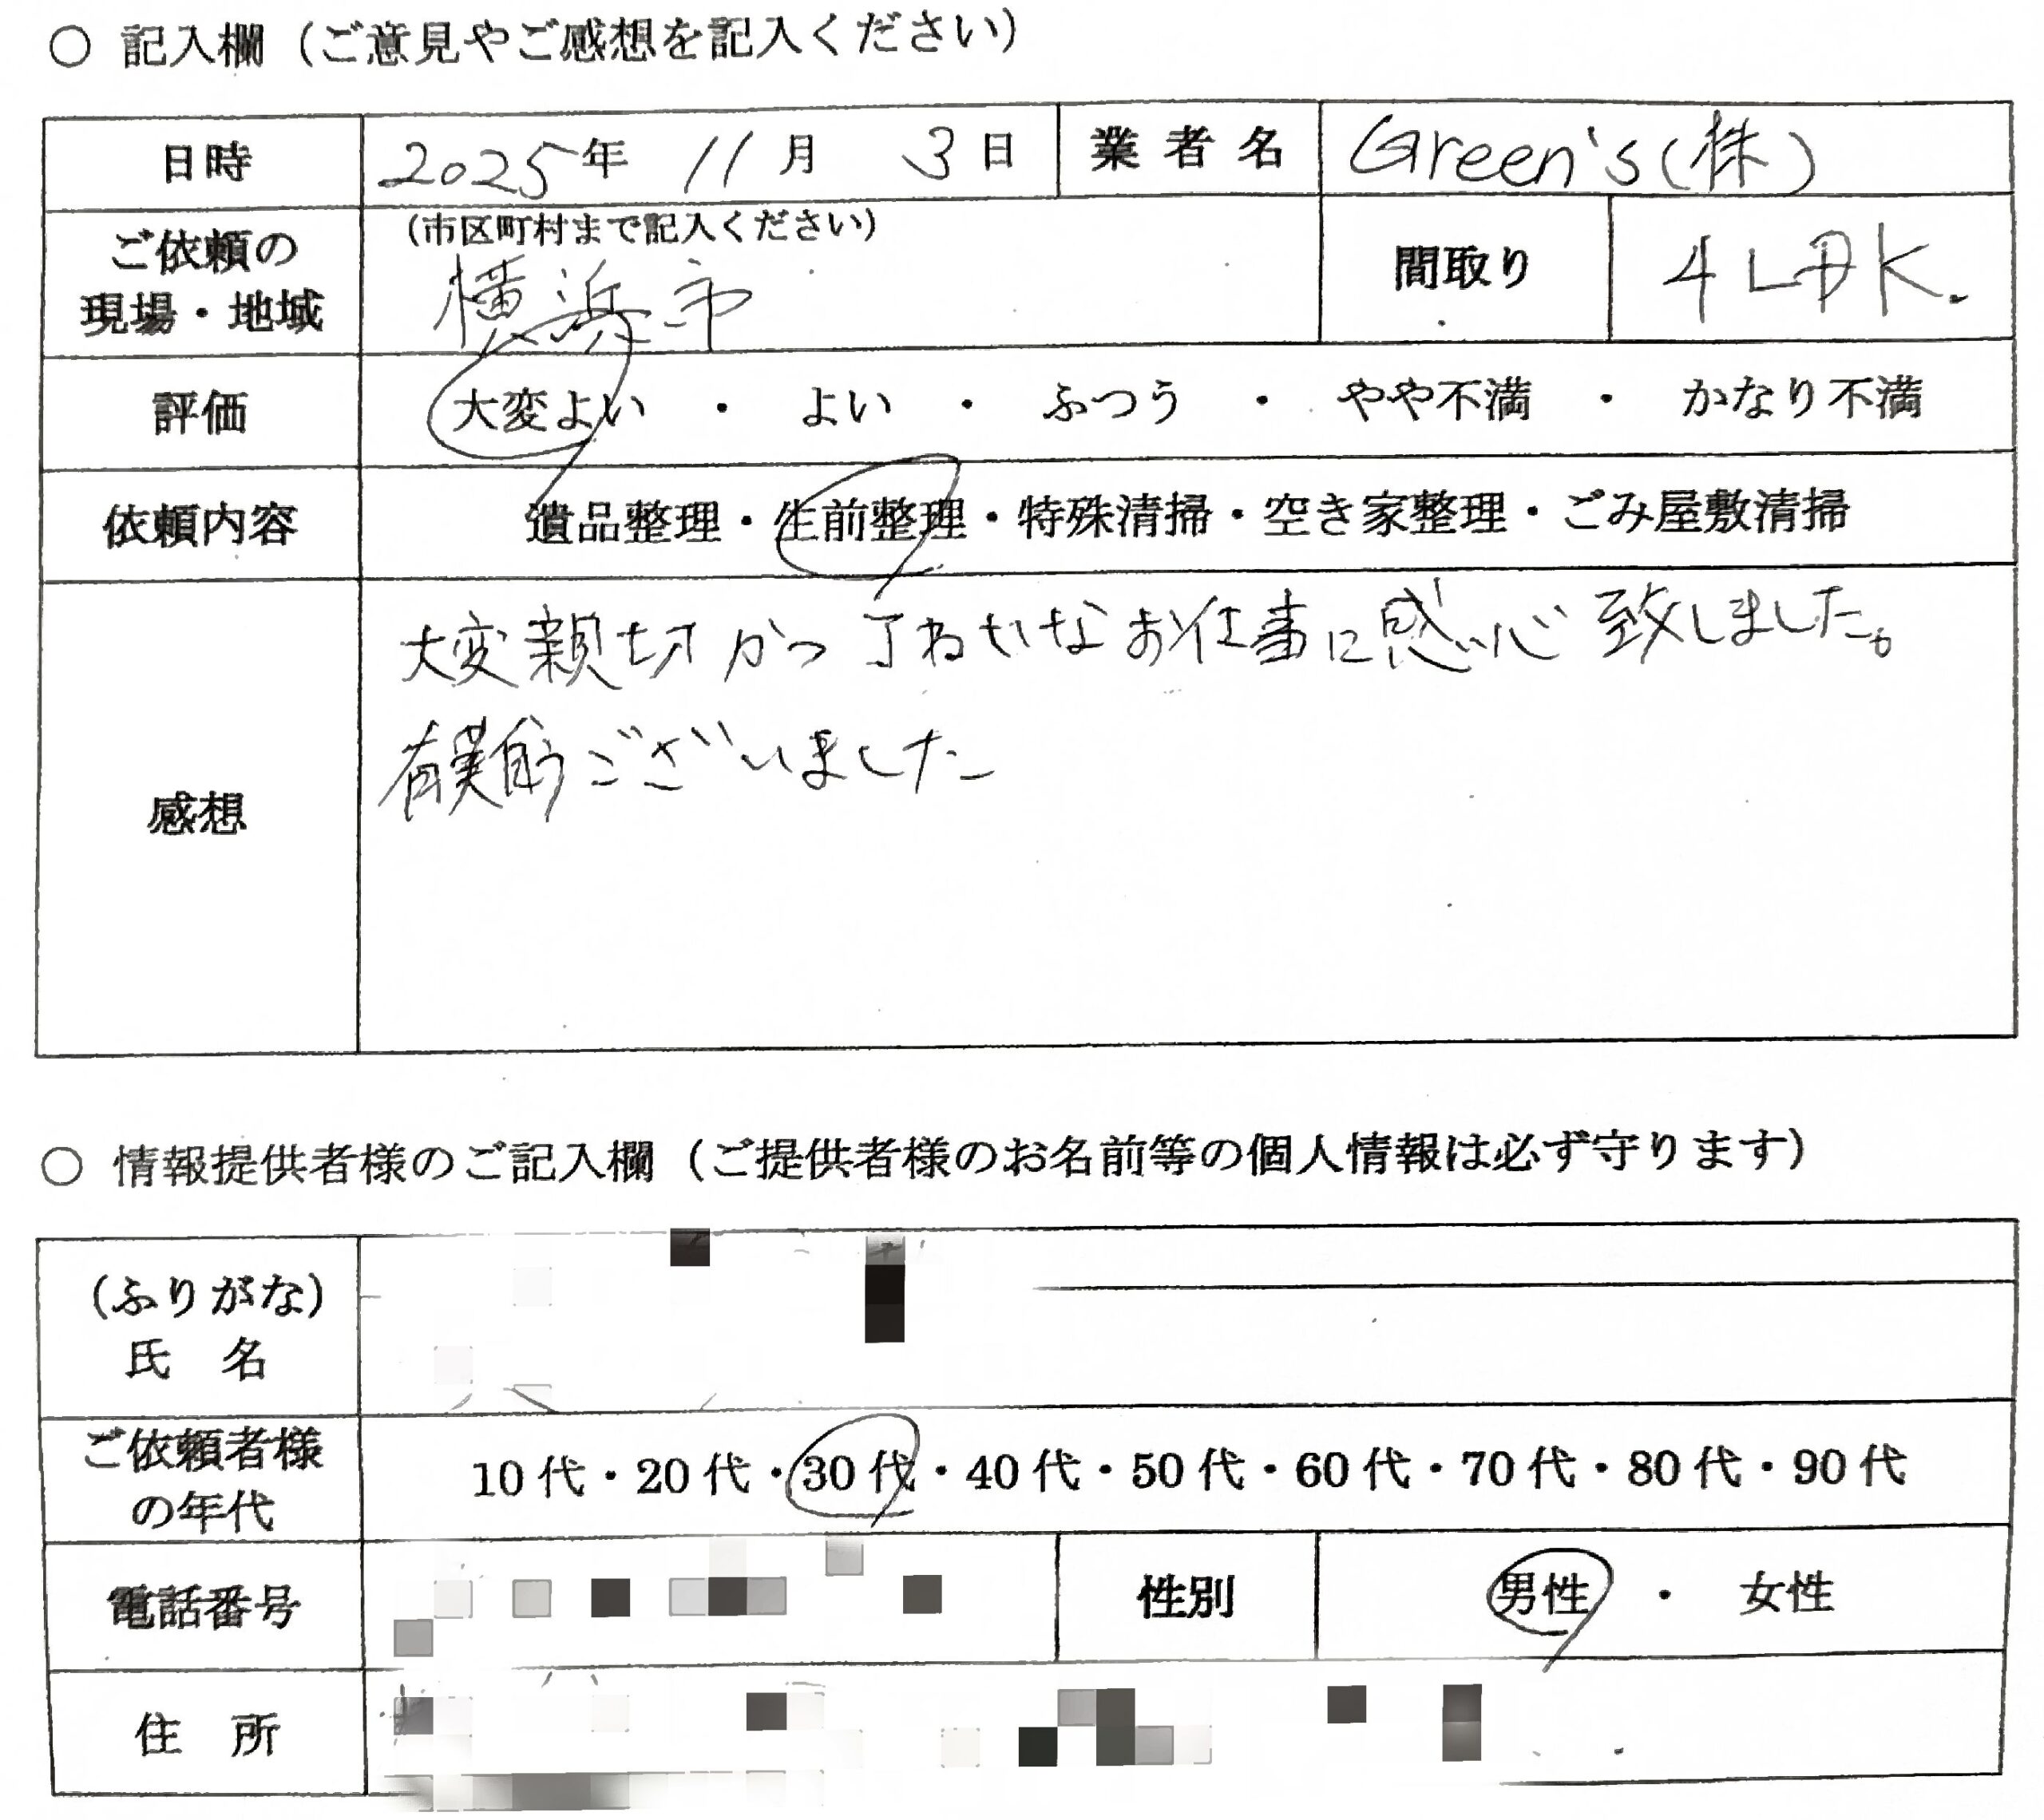 ○ 記入欄（ご意見やご感想を記入ください）
日時 2025年 11月 3日 業者名 Green's(株)
ご依頼の現場・地域 (市区町村まで記入ください) 横浜市 間取り 4LDK.
評価 大変よい ・ よい ・ ふつう ・ やや不満 ・ かなり不満
依頼内容 遺品整理・生前整理・特殊清掃・空き家整理・ごみ屋敷清掃
感想 大変親切かつ丁ねいなお仕事に感心致しました。
有難うございました
○ 情報提供者様のご記入欄（ご提供者様のお名前等の個人情報は必ず守ります）
(ふりがな)
氏 名
ご依頼者様の年代 10代・20代・30代・40代・50代・60代・70代・80代・90代
電話番号 性別 男性 ・ 女性
住 所